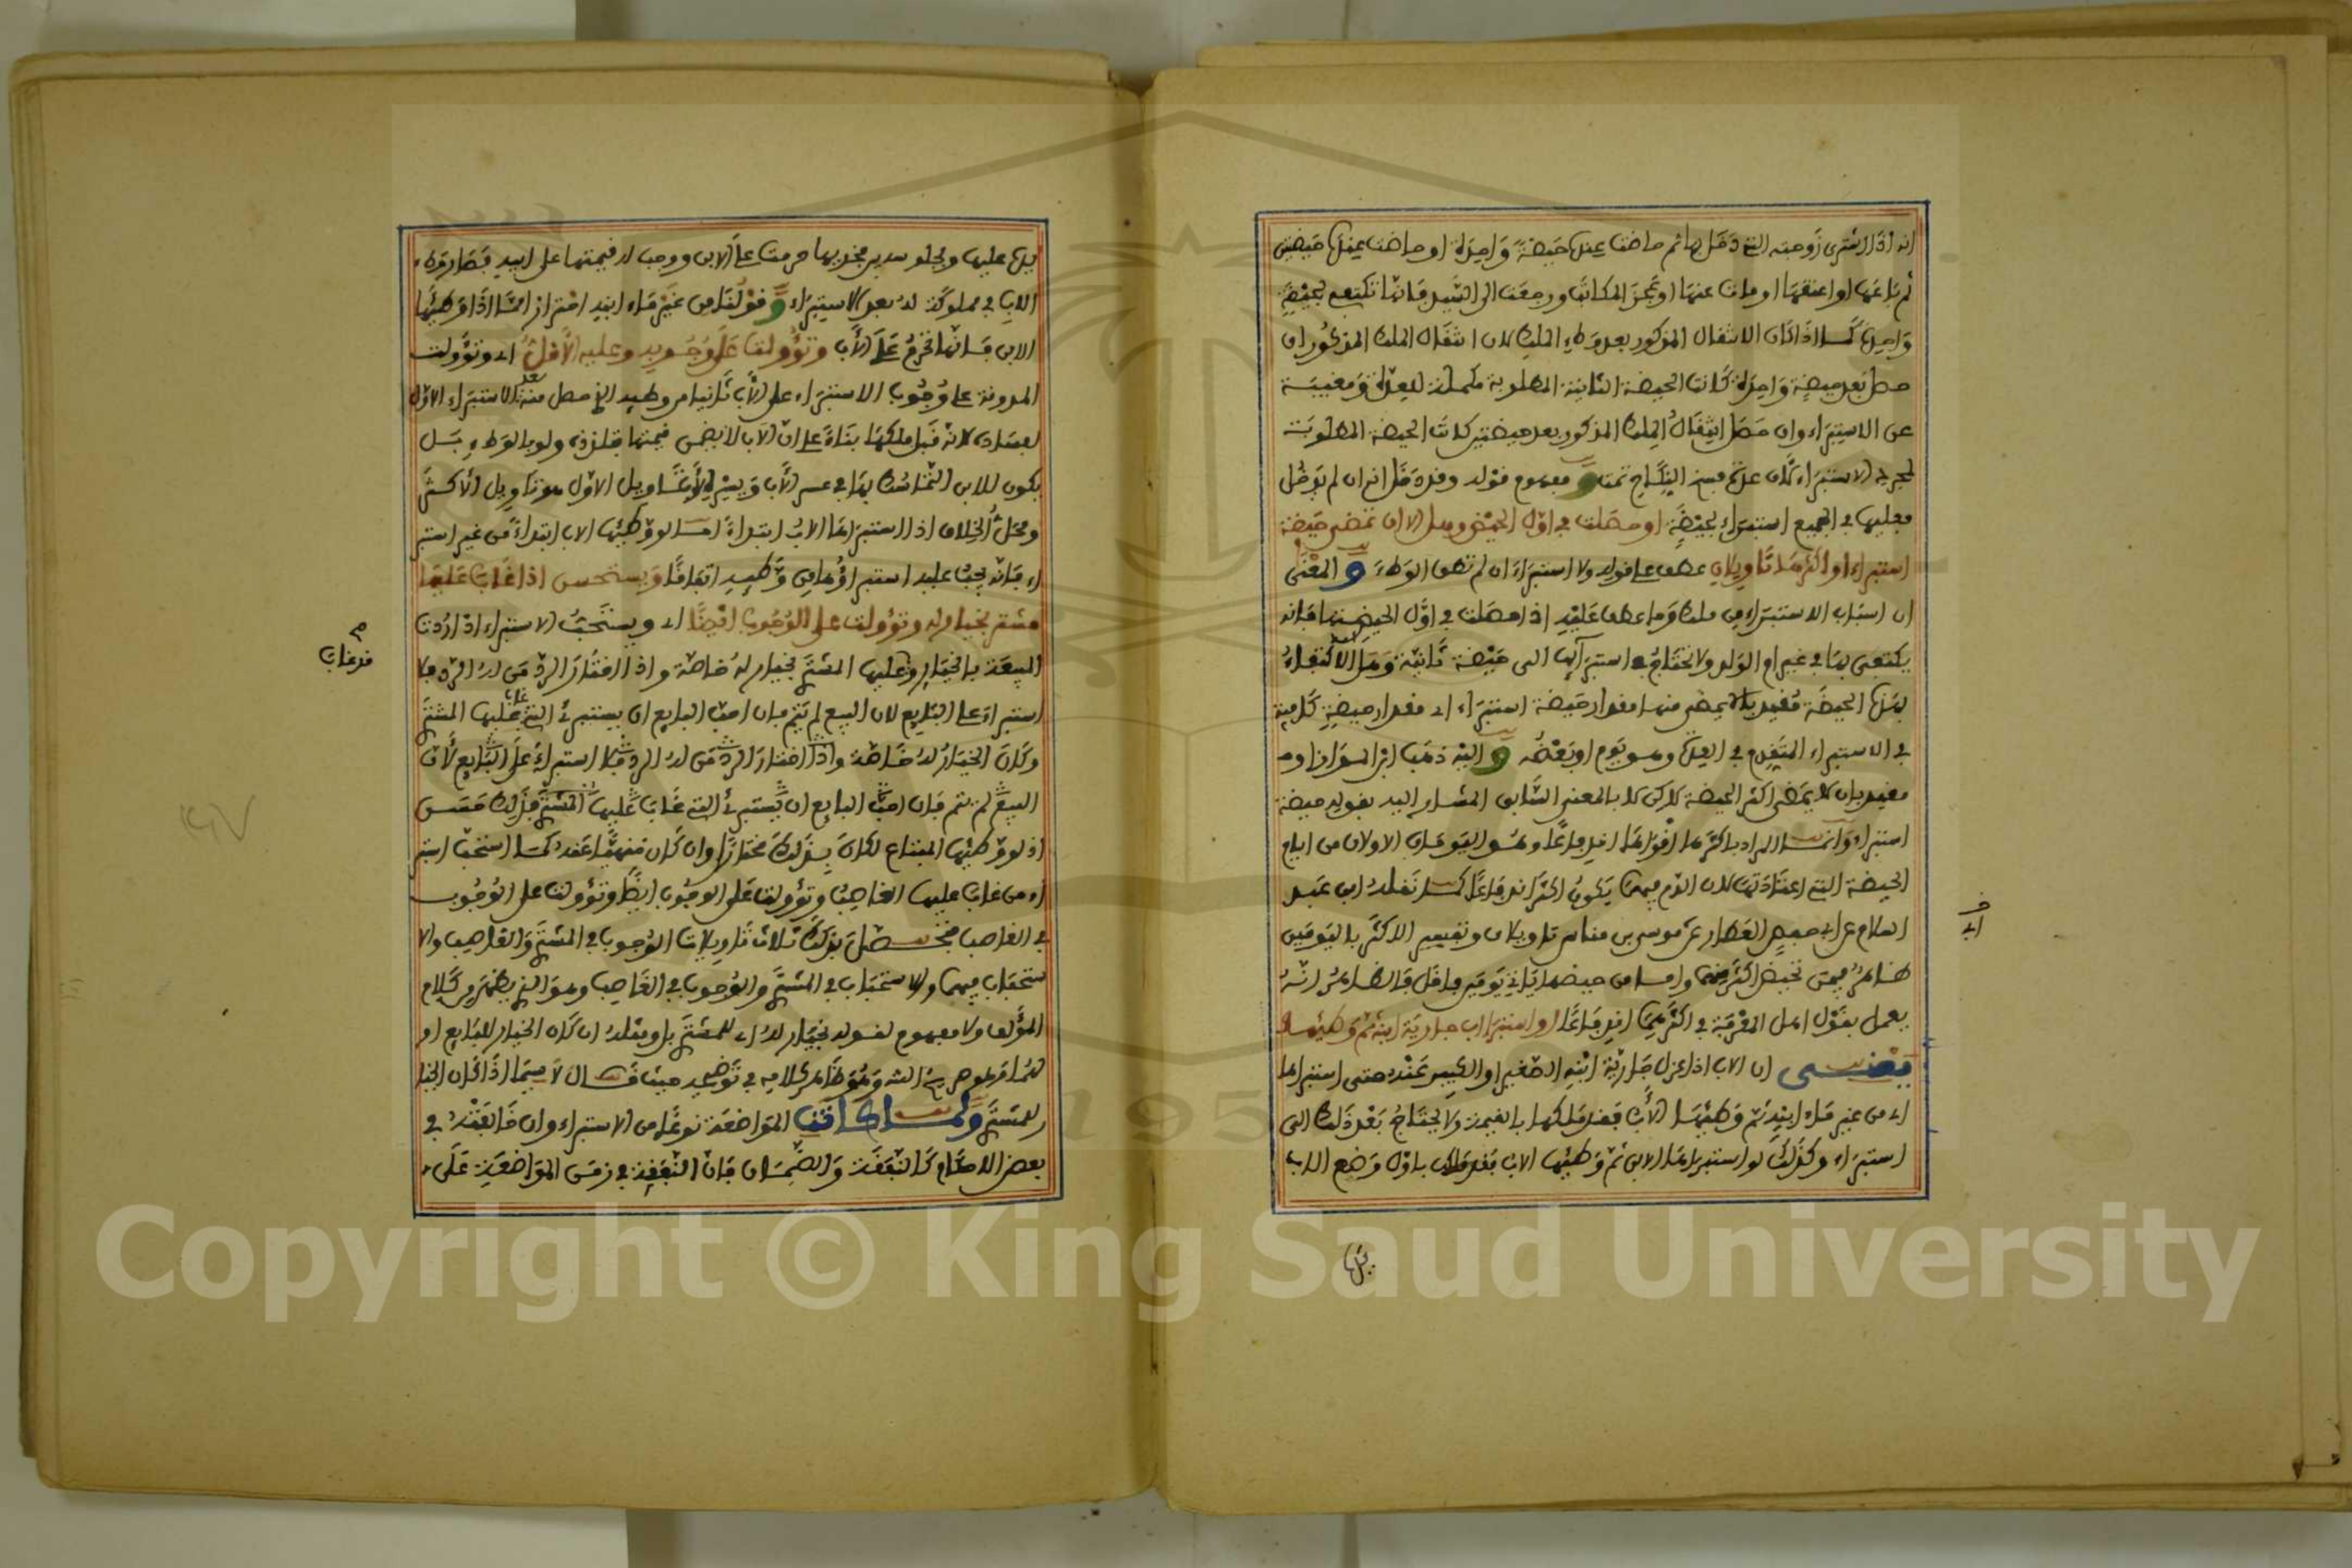 انه اذا اشترى زوجته التي دخل بها ثم حاضت عنده حيضة واحدة او حاضت عنده حيضتين
ثم باعها او اعتقها او مات عنها او عجز المكاتب ورجعت الى السيد فانها تكتفي بحيضة
واحدة كما اذا كان الانتقال المذكور بعد وطء الملك لان انتقال الملك المذكور ان
حصل بعد حيضة واحدة كانت الحيضة الثانية المطلوبة مكملة للعدة ومغنية
عن الاستبراء وان حصل انتقال الملك المذكور بعد حيضتين كانت الحيضة المطلوبة
لمجرد الاستبراء لان عدة فسخ النكاح تمت و مفهوم قوله وقد دخل انه ان لم يدخل
فعليها في الجميع استبراء بحيضة او حصلت في اول الحيض وهل الا ان تمضي حيضة
استبراء او اكثرها تاويلان عطف على قوله ولا استبراء ان لم تطق الوطء و المعنى
ان اسباب الاستبراء من ملك وما عطف عليه اذا حصلت في اول الحيض فانه
يكتفى بها في غير ام الولد ولا تحتاج في استبرائها الى حيضة ثانية وهل الاكتفاء
بهذه الحيضة مقيد بان لا يمضي منها مقدار حيضة استبراء اي مقدار حيضة كافية
في الاستبراء المتقدم في العدة وهو يوم او بعضه و اليه ذهب ابن المواز او
مقيد بان لا يمضي اكثر الحيضة لكن لا بالمعنى السابق المشار اليه بقوله حيضة
استبراء وانما المراد باكثرها اقواها اندفاعا وهو اليومان الاولان من ايام
الحيضة التي اعتادتها لان الدم فيهما يكون اكثر اندفاعا كما نقله ابن عبد
السلام عن ابي حفص العطار عن موسى بن مناس تاويلان وتفسير الاكثر باليومين
ظاهر فيمن تحيض اكثر منهما واما من حيضها يومين فاقل فالظاهر انه
يعمل بقول اهل المعرفة في اكثرهما اندفاعا او استبرا اب جارية ابنه ثم وطئها
يعني ان الاب اذا عزل جارية ابنه الصغير او الكبير عنده حتى استبراها
اي من غير ماء ابنه ثم وطئها الاب فقد ملكها بالقيمة ولا يحتاج بعد ذلك الى
استبراء وكذلك لو استبراها الابن ثم وطئها الاب فقد ملك باول وضع الاب
يده
اي
يده عليها وجلوسه بين فخذيها حرمت على الابن ووجب له قيمتها على ابيه فصار وطء
الاب في مملوكة له بعد الاستبراء و قولنا من غير ماء ابنه احترازا مما اذا وطئها
الابن فانها تحرم على الاب وتؤولت على وجوبه وعليه الاقل اي وتؤولت
المدونة على وجوب الاستبراء على الاب ثانيا من وطئه الذي حصل منه بعد الاستبراء الاول
لفساده لانه قبل ملكها بناء على ان الاب لا يضمن قيمتها بتلذذه ولو بالوطء بل
يكون للابن التماسك بها في عسر الاب ويسره والتاويل الاول هو تاويل الاكثر
ومحل الخلاف اذا استبراها الاب ابتداء اما لو وطئها الاب ابتداء من غير استبر
اء فانه يجب عليه استبراؤها من وطئه اتفاقا ويستحسن اذا غاب عليها
مشتر بخيار له وتؤولت على الوجوب ايضا اي ويستحب الاستبراء اذا ردت
المبيعة بالخيار وقد غاب عليها المشتري بخيار له خاصة واذا اختار الرد من له الرد فلا
استبراء على البايع لان البيع لم يتم فان احب البايع ان يستبرئ التي غاب عليها المشتري
وكان الخيار له خاصة واذا اختار الرد من له الرد فلا استبراء على البايع لان
البيع لم يتم فان احب البايع ان يستبرئ التي غاب عليها المشتري فذلك حسن
اذ لو وطئها المبتاع لكان بذلك مختارا وان كان منهيا عنه كما استحب استبر
اء من غاب عليها الغاصب وتؤولت على الوجوب ايضا وتؤولت على الوجوب
في الغاصب فحصل بذلك ثلاث تاويلات الوجوب في المشتري والغاصب والا
ستحباب فيهما والاستحباب في المشتري والوجوب في الغاصب وهو الذي يظهر من كلام
المؤلف ولا مفهوم لقوله بخيار له اي للمشتري بل ومثله ان كان الخيار للبايع او
لهما وهو ظاهر كلامه في توضيحه حيث قال لا سيما اذا كان الخيار
للمشتري ولما كانت المواضعة نوعا من الاستبراء وان خالفته في
بعض الاحكام كالنفقة والضمان فان النفقة في زمن المواضعة على
قد غاب